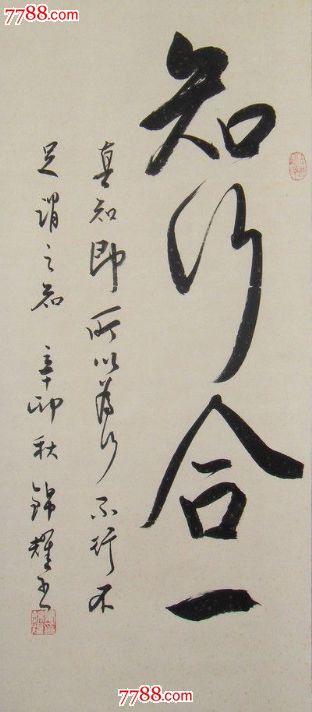 7788.com
知行合一
真知即所以為行不行不
足謂之知 辛卯秋 錦耀書
7788.com